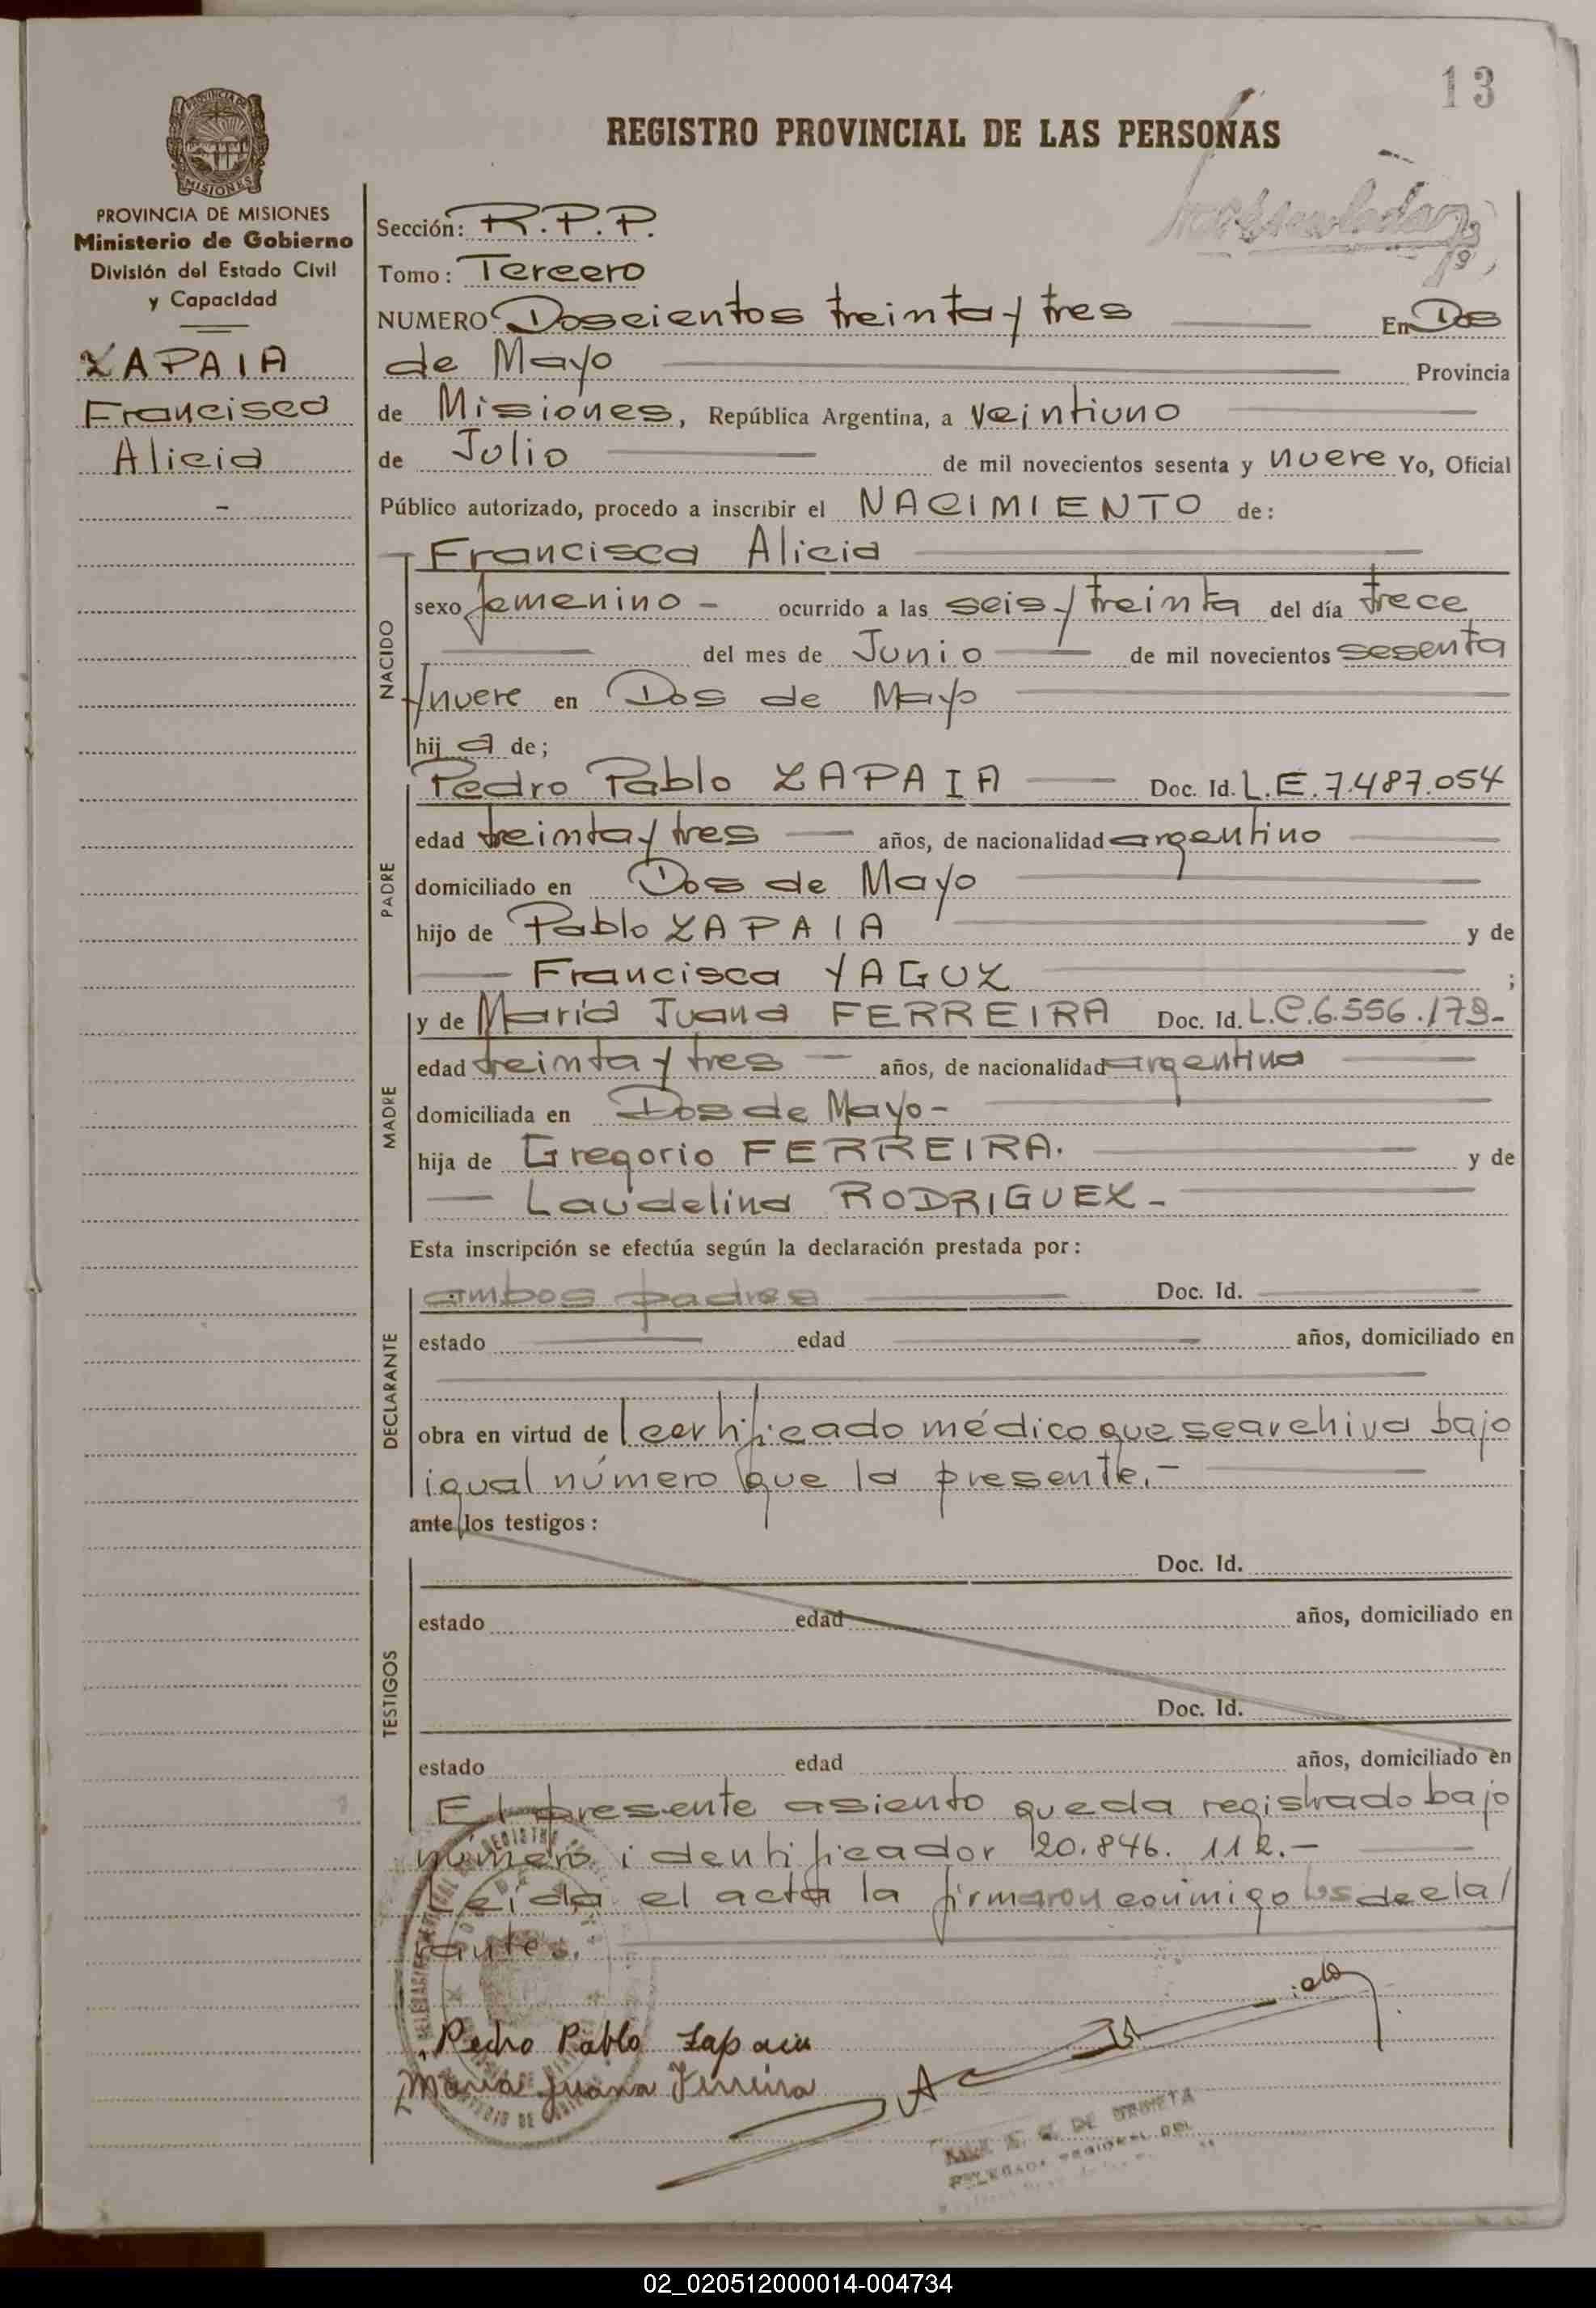 13
REGISTRO PROVINCIAL DE LAS PERSONAS
PROVINCIA DE MISIONES
MISIONES
PROVINCIA DE MISIONES
Ministerio de Gobierno
División del Estado Civil
y Capacidad
ZAPAIA
Francisca
Alicia
Sección: R.P.P.
Tomo: Tercero
NUMERO Doscientos treinta y tres En Dos
de Mayo Provincia
de Misiones, República Argentina, a veintiuno
de Julio de mil novecientos sesenta y nueve Yo, Oficial
Público autorizado, procedo a inscribir el NACIMIENTO de:
Francisca Alicia
NACIDO
sexo femenino - ocurrido a las seis y treinta del día trece
del mes de Junio de mil novecientos sesenta
y nueve en Dos de Mayo
hij a de;
PADRE
Pedro Pablo ZAPAIA Doc. Id. L.E. 7.487.054
edad treinta y tres años, de nacionalidad argentino
domiciliado en Dos de Mayo
hijo de Pablo ZAPAIA y de
Francisca YAGUZ ;
MADRE
y de María Juana FERREIRA Doc. Id. L.C. 6.556.179-
edad treinta y tres años, de nacionalidad argentina
domiciliada en Dos de Mayo-
hija de Gregorio FERREIRA. y de
Laudelina RODRIGUEZ-
Esta inscripción se efectúa según la declaración prestada por:
DECLARANTE
ambos padres Doc. Id.
estado edad años, domiciliado en
obra en virtud de certificado médico que se archiva bajo
igual número que la presente.-
ante los testigos:
TESTIGOS
Doc. Id.
estado edad años, domiciliado en
Doc. Id.
estado edad años, domiciliado en
El presente asiento queda registrado bajo
número identificador 20.846.112.-
Leída el acta la firmaron conmigo los decla/
rantes.
Pedro Pablo Zapaia
María Juana Ferreira
02_020512000014-004734